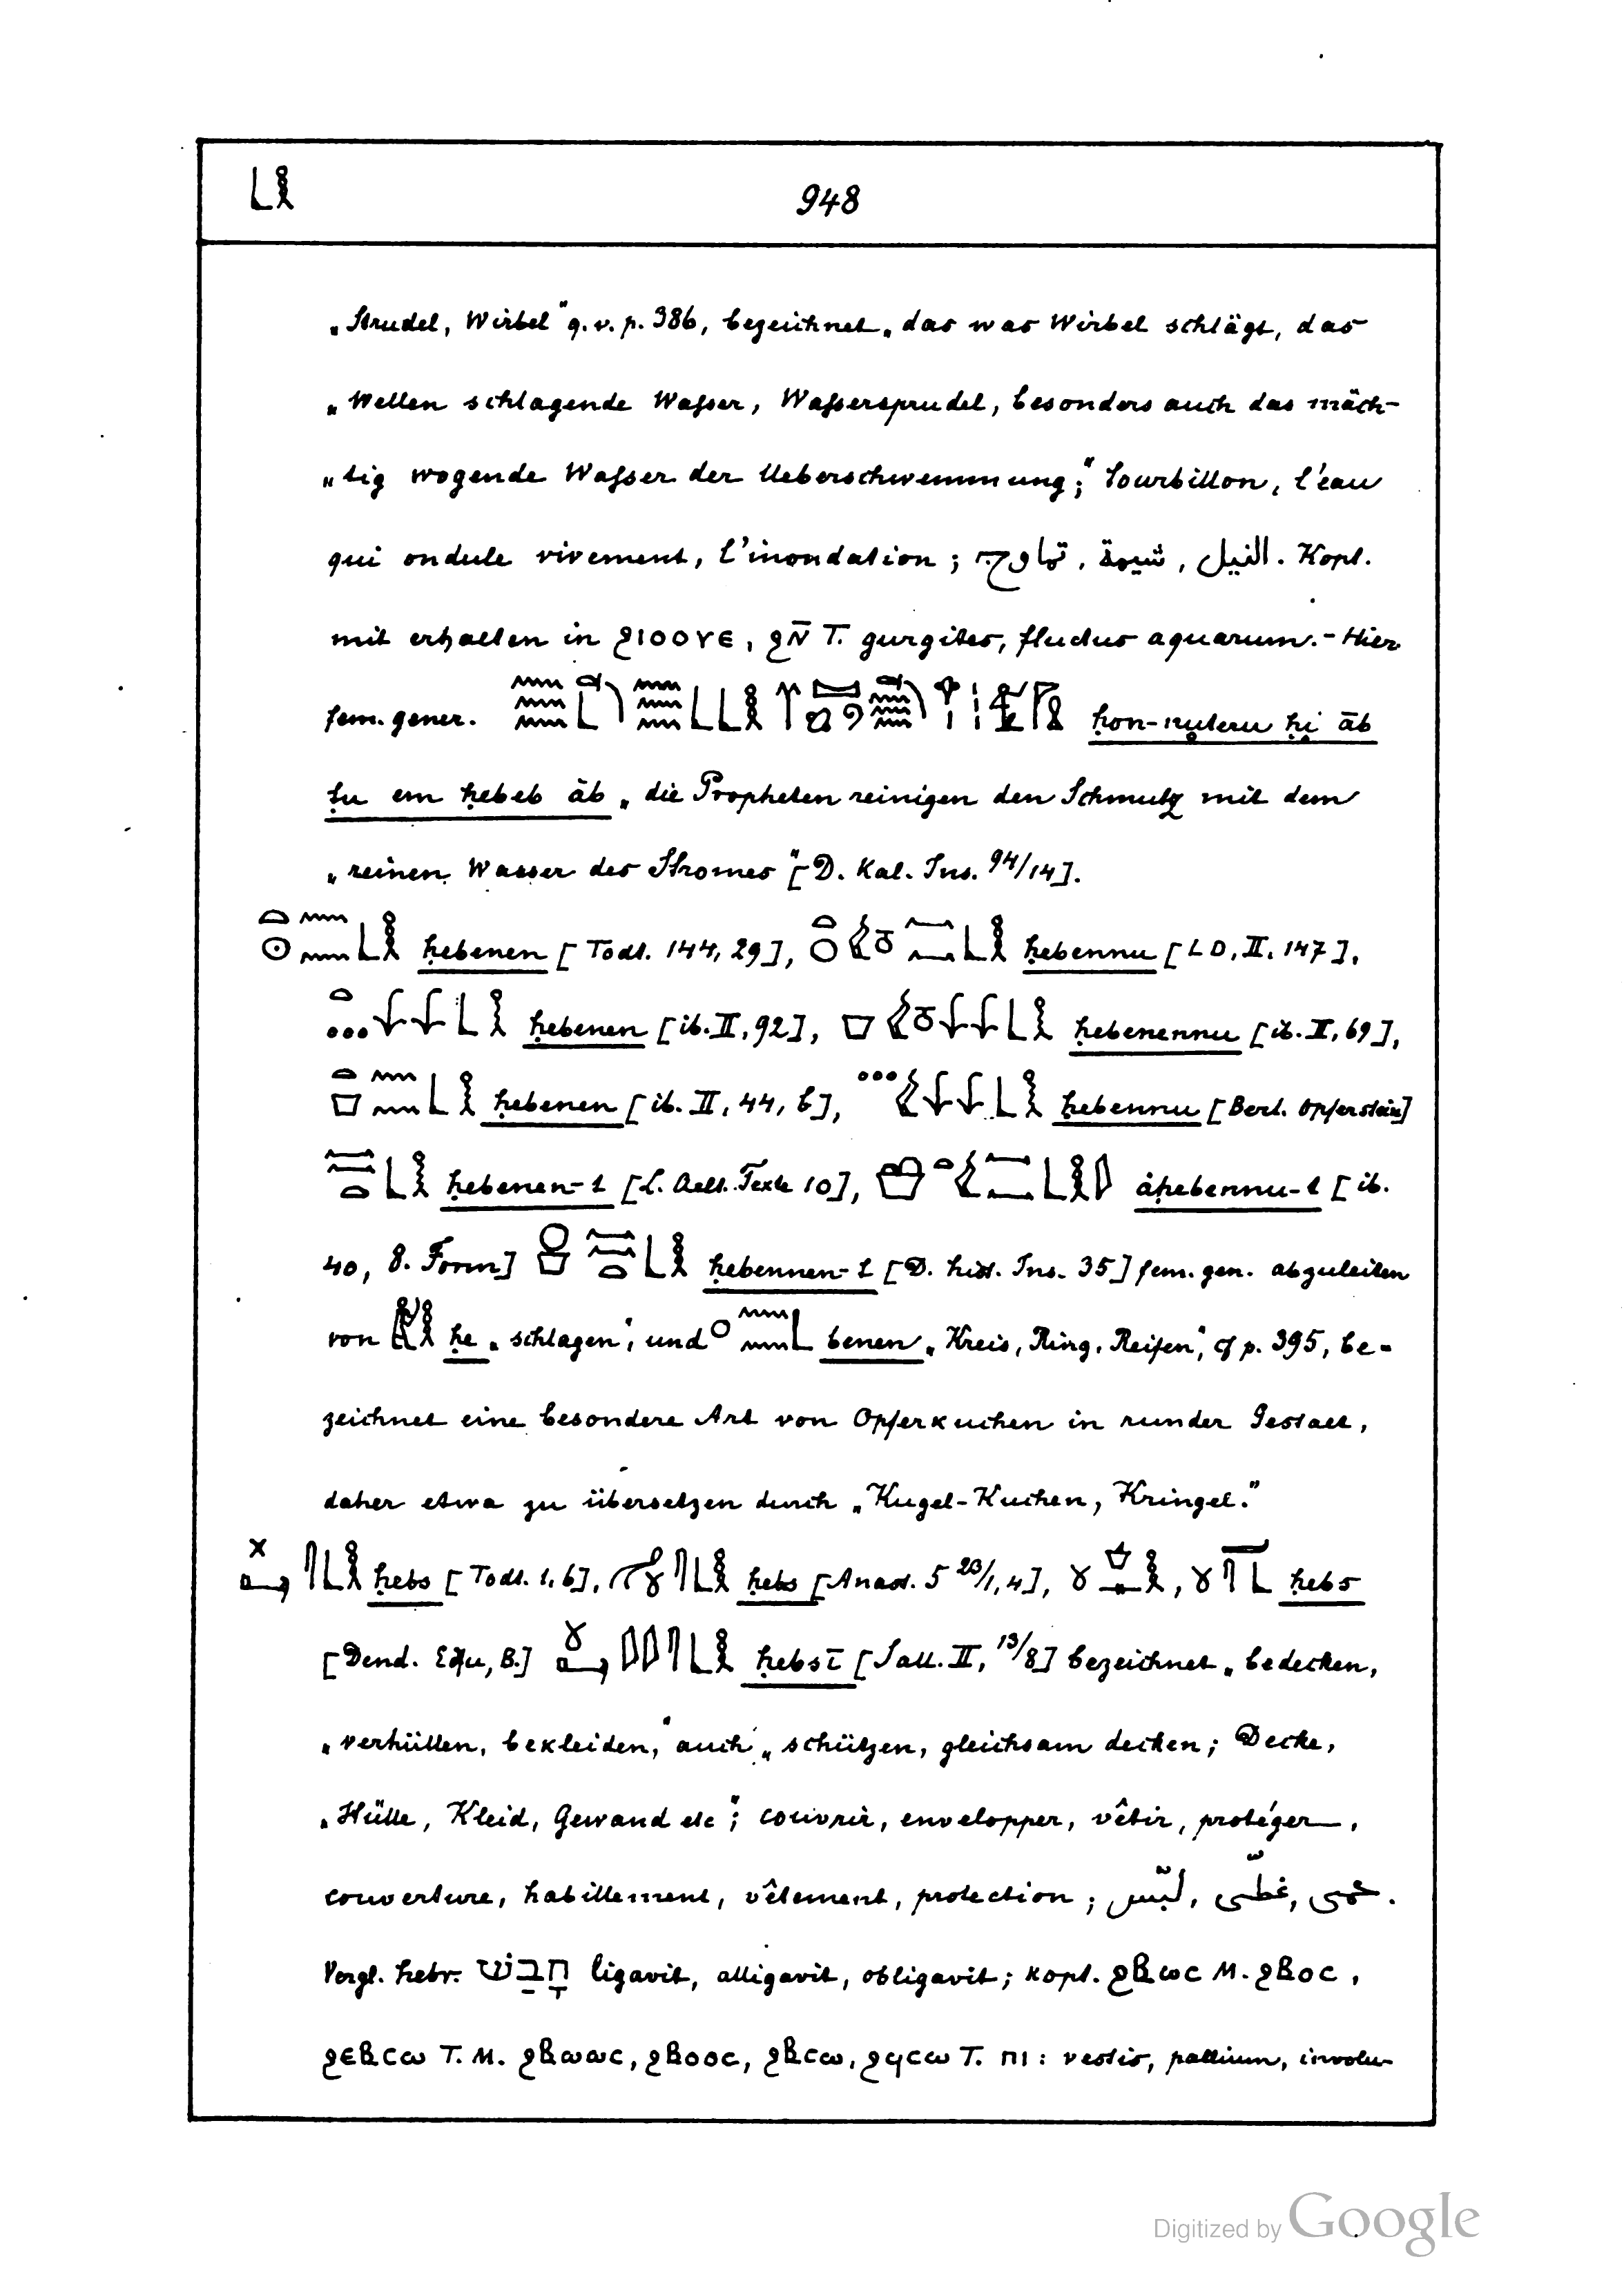 948
„Strudel, Wirbel“ q.v. p. 386, bezeichnet „das was Wirbel schlägt, das
„Wellen schlagende Waſser, Waſsersprudel, besonders auch das mäch-
„tig wogende Waſser der Ueberschwemmung;“ tourbillon, l'éau
qui ondule vivement, l'inondation; تماوج, شيمة, النيل. Kopt.
mit erhalten in ϩⲓⲟⲟⲩⲉ, ϩⲛ̄ T. gurgites, fluctus aquarum. - Hier
fem. gener. ḥon-nuteru ḥi āb
tu em ḥebeb āb „die Propheten reinigen den Schmutz mit dem
„reinen Wasser des Stromes“ [D. Kal. Ins. 94/14].
ḥebenen [Todt. 144, 29], ḥebennu [LD, II, 147],
ḥebenen [ib. II, 92], ḥebenennu [ib. II, 69],
ḥebenen [ib. II, 44, b], ḥebennu [Berl. Opferstein]
ḥebenen-t [L. Aelt. Texte 10], ȧḥebennu-t [ib.
40, 8. Form] ḥebennen-t [D. hist. Ins. 35] fem. gen. abzuleiten
von ḥe „schlagen“, und benen „Kreis, Ring, Reifen“, cf p. 395, be-
zeichnet eine besondere Art von Opferkuchen in runder Gestalt,
daher etwa zu übersetzen durch „Kugel-Kuchen, Kringel.“
ḥebs [Todt. 1, 6], ḥebs [Anast. 5 23/1, 4], ḥebs
[Dend. Edfu, B.] ḥebsī [Sall. II, 13/8] bezeichnet „bedecken,
„verhüllen, bekleiden,“ auch „schützen, gleichsam decken; Decke,
„Hülle, Kleid, Gewand etc“; couvrir, envelopper, vêtir, protéger,
couverture, habillement, vêtement, protection; لبّس, غطّى, حمى.
Vergl. hebr. חָבַשׁ ligavit, alligavit, obligavit; kopt. ϩⲃⲱⲥ M. ϩⲃⲟⲥ,
ϩⲉⲃⲥⲱ T. M. ϩⲃⲱⲱⲥ, ϩⲃⲟⲟⲥ, ϩⲃⲥⲱ, ϩϥⲥⲱ T. ⲡⲓ: vestis, pallium, involu-
Digitized by Google